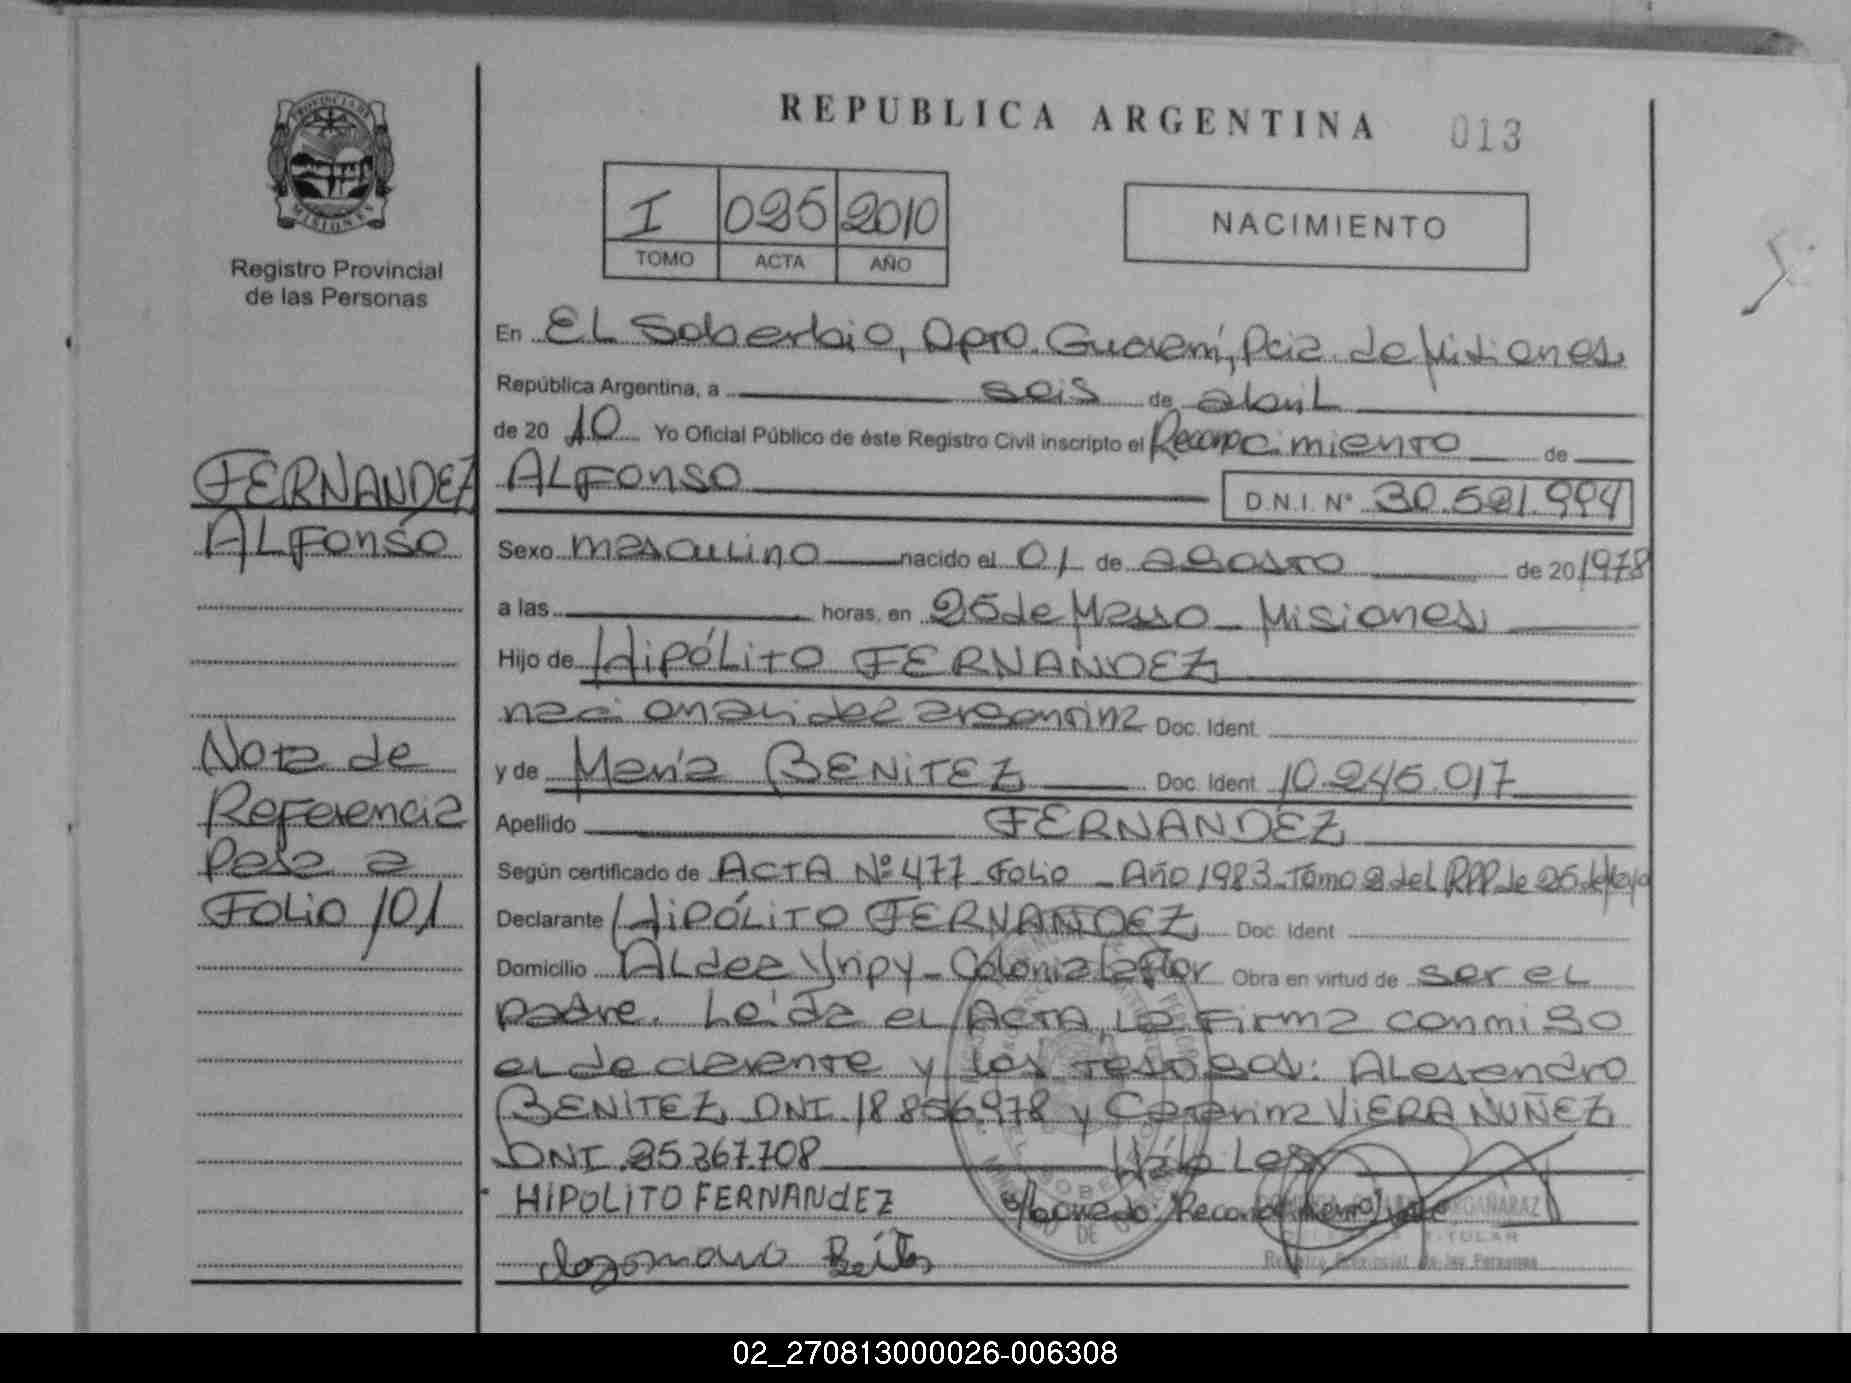 REPUBLICA ARGENTINA 013
PROVINCIA DE MISIONES
Registro Provincial
de las Personas
I 025 2010
TOMO ACTA AÑO
NACIMIENTO
En EL Soberbio, Dpto. Guaraní, Pcia de Misiones
República Argentina, a seis de abril
de 20 10 Yo Oficial Público de éste Registro Civil inscripto el Reconocimiento de
FERNANDEZ
ALFONSO
ALFONSO D.N.I. N° 30.521.994
Sexo masculino nacido el 01 de agosto de 20 1978
a las horas, en 25 de Mayo - Misiones
Hijo de HIPÓLITO FERNANDEZ
nacionalidad argentina Doc. Ident.
y de María BENITEZ Doc. Ident. 10.245.017
Apellido FERNANDEZ
Nota de
Referencia
Pasa a
FOLIO 101
Según certificado de ACTA Nº 477 Folio - Año 1983 - Tomo 2 del RPP de 25 de Mayo
Declarante HIPÓLITO FERNANDEZ Doc. Ident
Domicilio ALdea Yriipy - Colonia La Flor Obra en virtud de ser el
padre. Leída el ACTA, La Firma conmigo
el declarante y los testigos: ALejandro
BENITEZ, DNI 18.856.978 y Catarina VIERA NUÑEZ
DNI 25.367.708
HIPOLITO FERNANDEZ
s/borrado: Reconocimiento, Vale
TITULAR
Registro Provincial de las Personas
02_270813000026-006308